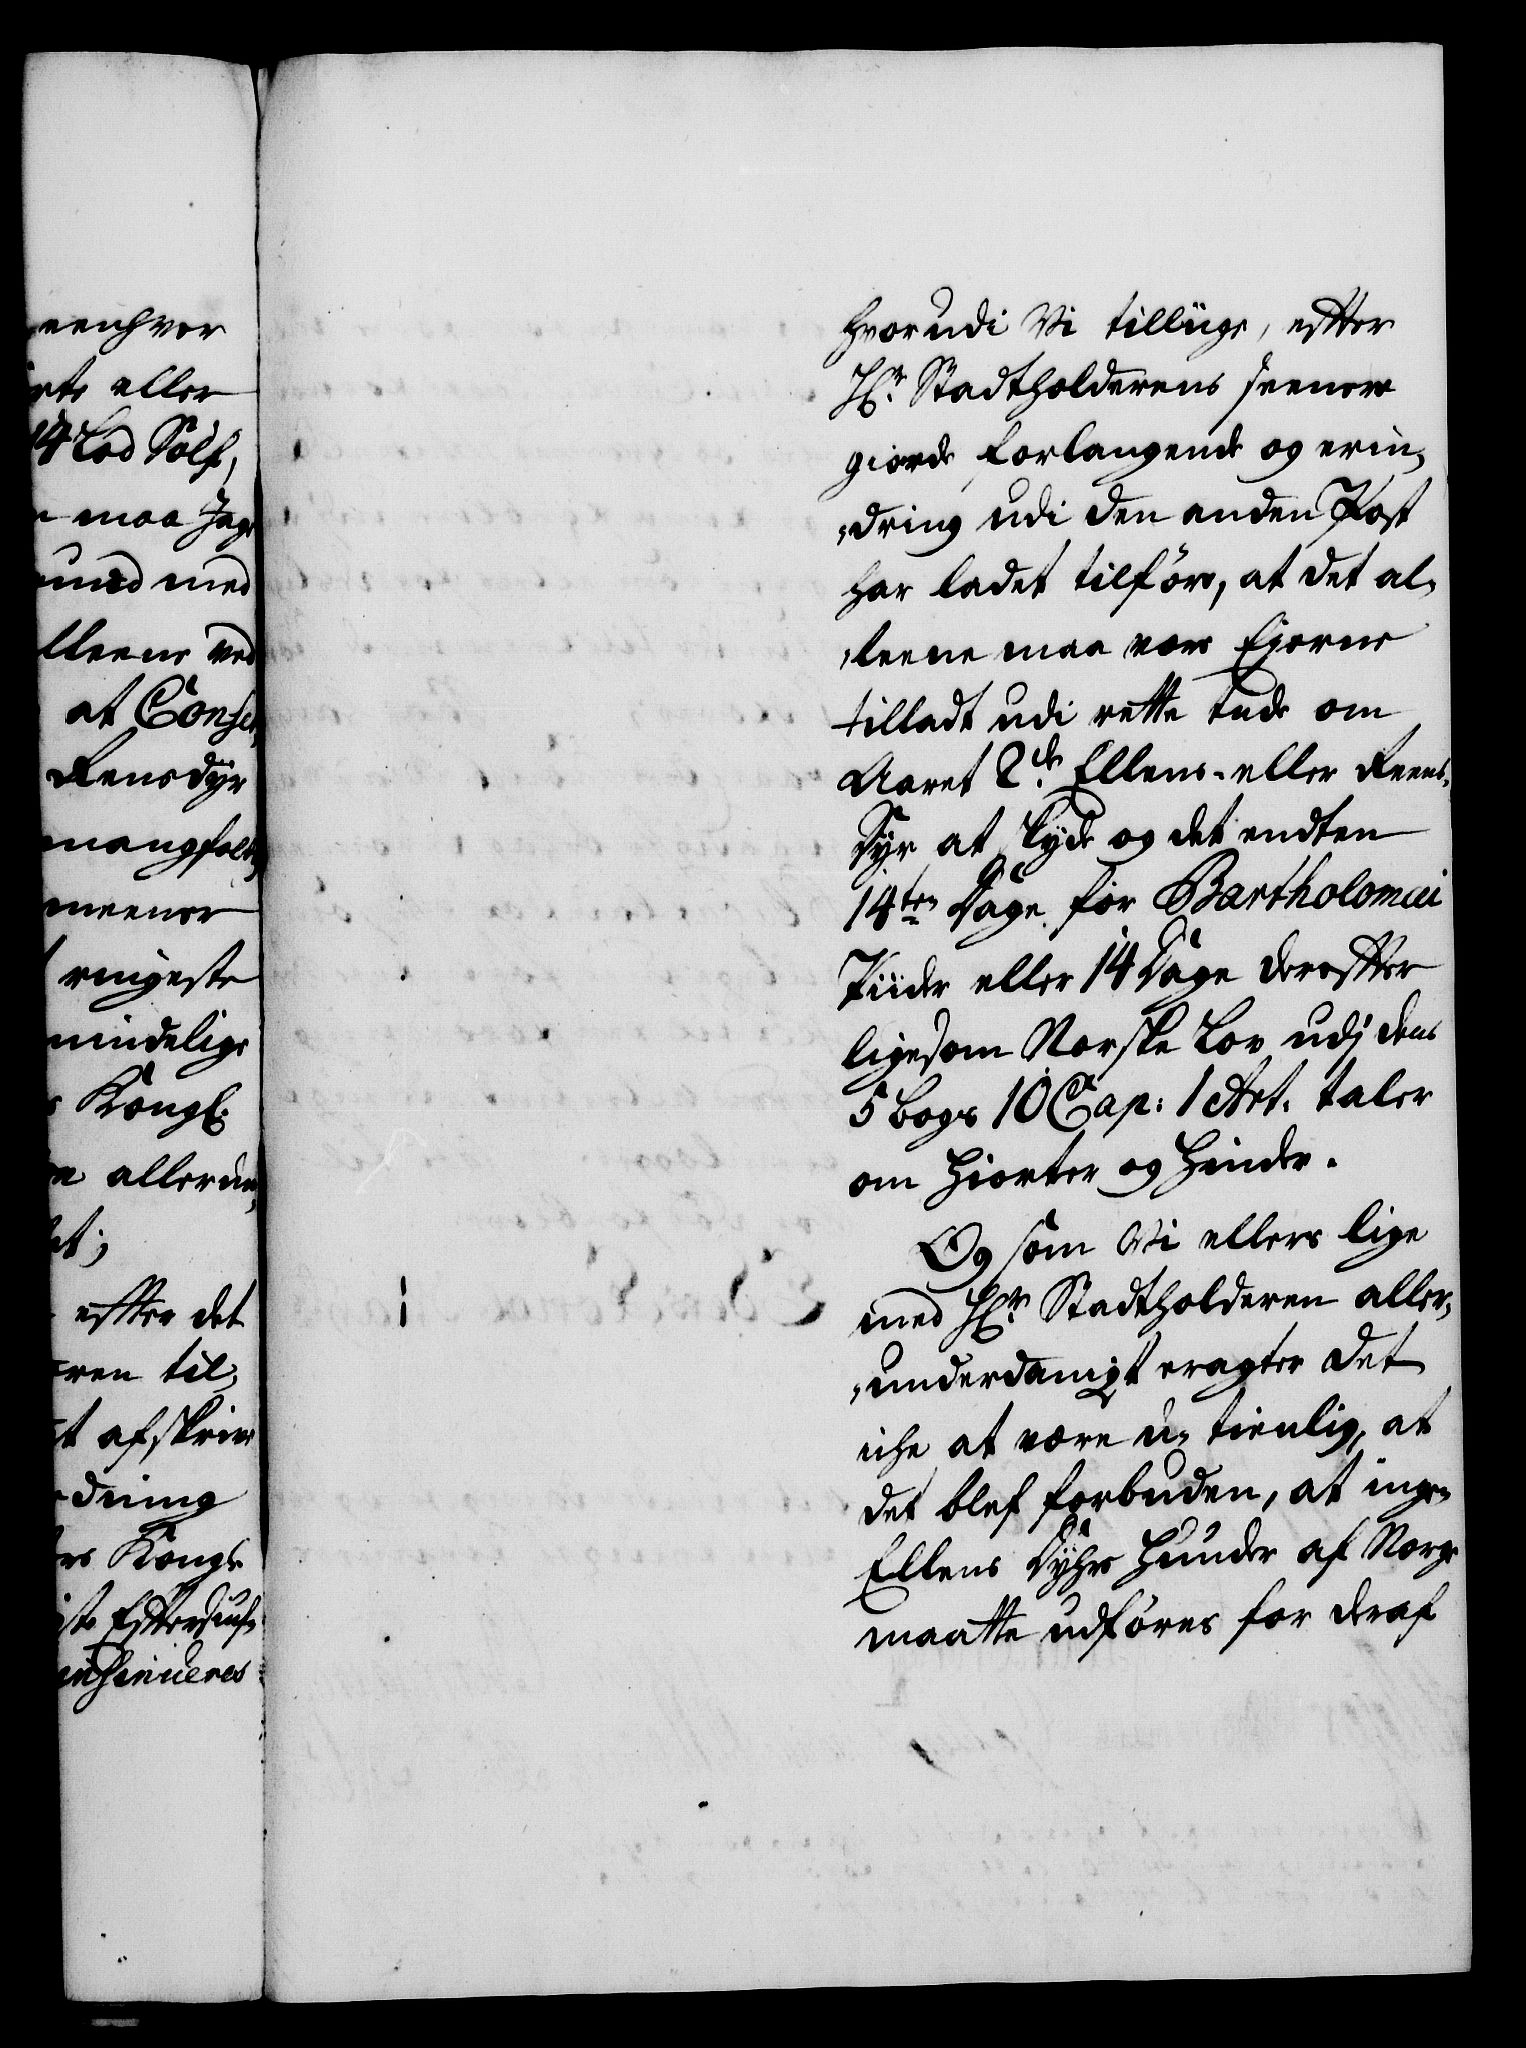 eenhver
rte eller
14 Lod Sölf,
maa Jage
und med
lleene ved
at Conse
Rensdÿr
mangfoldi
meener
ringeste
mindelige
Kongl:
allerun,
et;
effter det
ren til,
t afskrive
dning
rs Kongl:
iste Effter
hvorudi Vi tilliige, effter
Hr: Stadtholderens seenere
giorde forlangende og erin,
,dring udi den anden Post
har ladet tilföre, at det al,
,leene maa være Eÿerne
tilladt udi rette tude om
Aaret 2de Ellens- eller Reens-
Dÿr at skÿde og det endten
14ten Dage för Bartholomæi
Tiider eller 14 Dage dereffter
ligesom Norske Lov udj dens
5 bogs 10 Cap: 1 Art. taler
om Hiorter og Hinder.
Og som Vi ellers lige
med Hr: Stadtholderen aller,
,underdanigst eragter det
icke at være u, tienlig, at
det blef forbuden, at ingen
Ellens Dÿhrs Hunder af Norge
maatte udföres for deraf